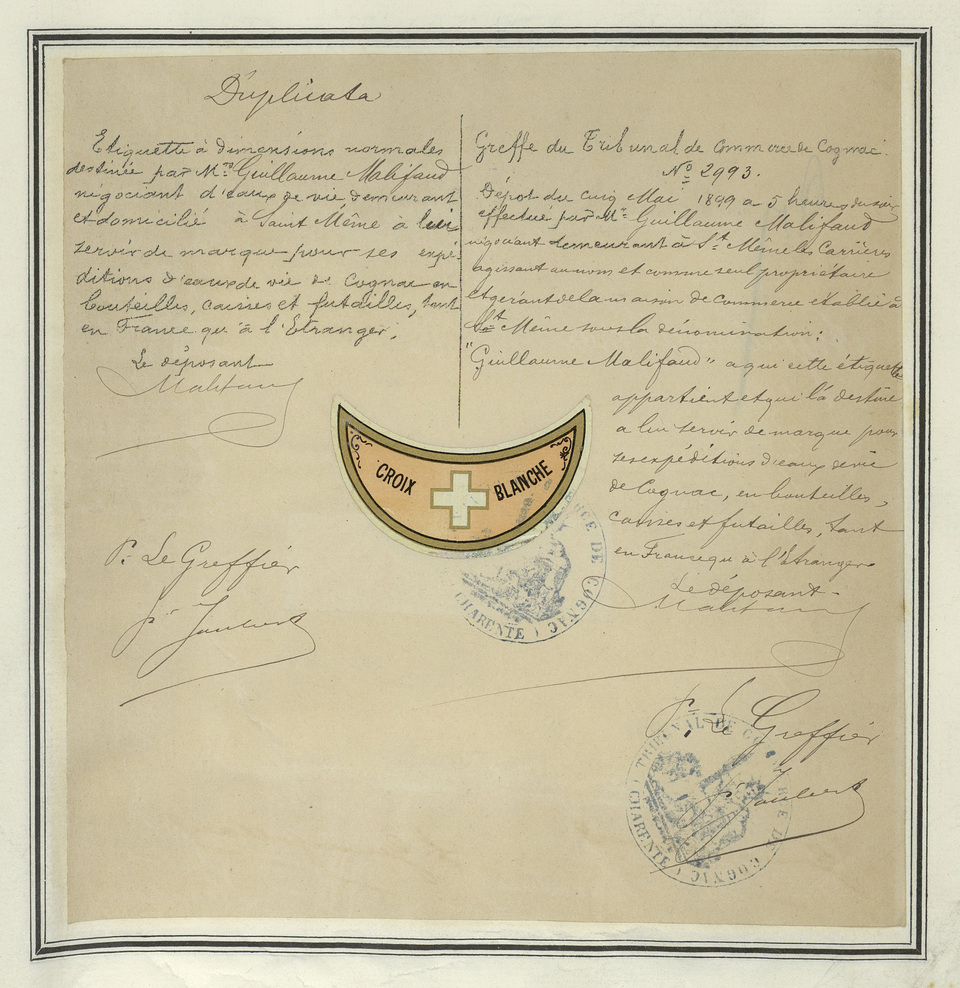 Duplicata
Etiquette à dimensions normales
destinée par Mr. Guillaume Malifaud
négociant d'eaux de vie, demeurant
et domicilié à Saint Même à lui
servir de marque pour ses expé-
ditions d'eaux de vie de Cognac en
bouteilles, caisses et futailles, tant
en France qu'à l'Etranger.
Le déposant
Malifaud
Pr. Le Greffier
Greffe du Tribunal de Commerce de Cognac.
No. 2993.
Dépôt du cinq Mai 1899 à 5 heures du soir
effectué par Mr. Guillaume Malifaud
négociant demeurant à St. Même les Carrières
agissant au nom et comme seul propriétaire
et gérant de la maison de commerce établie à
St. Même sous la dénomination:
"Guillaume Malifaud" a qui cette étiquette
appartient et qui l'a destiné
a lui servir de marque pour
ses expéditions d'eaux de vie
de Cognac, en bouteilles,
caisses et futailles, tant
en France qu'à l'Etranger
Le déposant -
Malifaud
CROIX BLANCHE
CE DE COGNAC (CHARENTE)
Pr. Le Greffier
TRIBUNAL DE CO RCE DE COGNAC (CHARENTE)